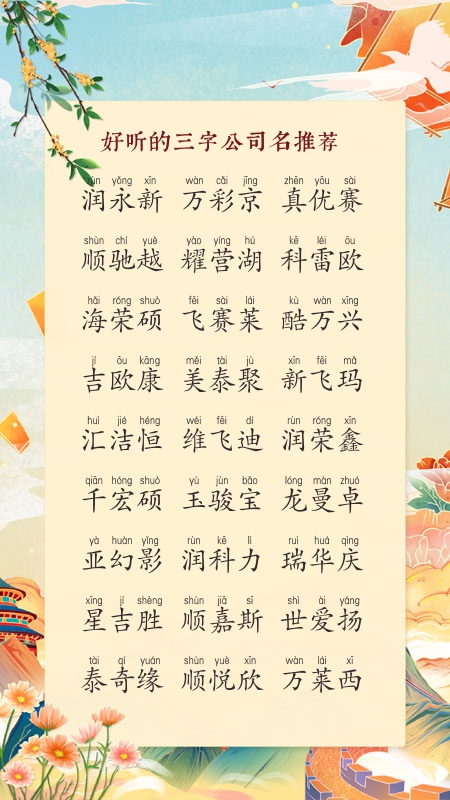 好听的三字公司名推荐
rùn yǒng xīn wàn cǎi jīng zhēn yōu sài
润永新 万彩京 真优赛
shùn chí yuè yào yíng hú kē léi ōu
顺驰越 耀营湖 科雷欧
hǎi róng shuò fēi sài lái kù wàn xīng
海荣硕 飞赛莱 酷万兴
jí ōu kāng měi tài jù xīn fēi mǎ
吉欧康 美泰聚 新飞玛
huì jié héng wéi fēi dí rùn róng xīn
汇洁恒 维飞迪 润荣鑫
qiān hóng shuò yù jùn bǎo lóng màn zhuó
千宏硕 玉骏宝 龙曼卓
yà huàn yǐng rùn kē lì ruì huá qìng
亚幻影 润科力 瑞华庆
xīng jí shèng shùn jiā sī shì ài yáng
星吉胜 顺嘉斯 世爱扬
tài qí yuán shùn yuè xīn wàn lái xī
泰奇缘 顺悦欣 万莱西